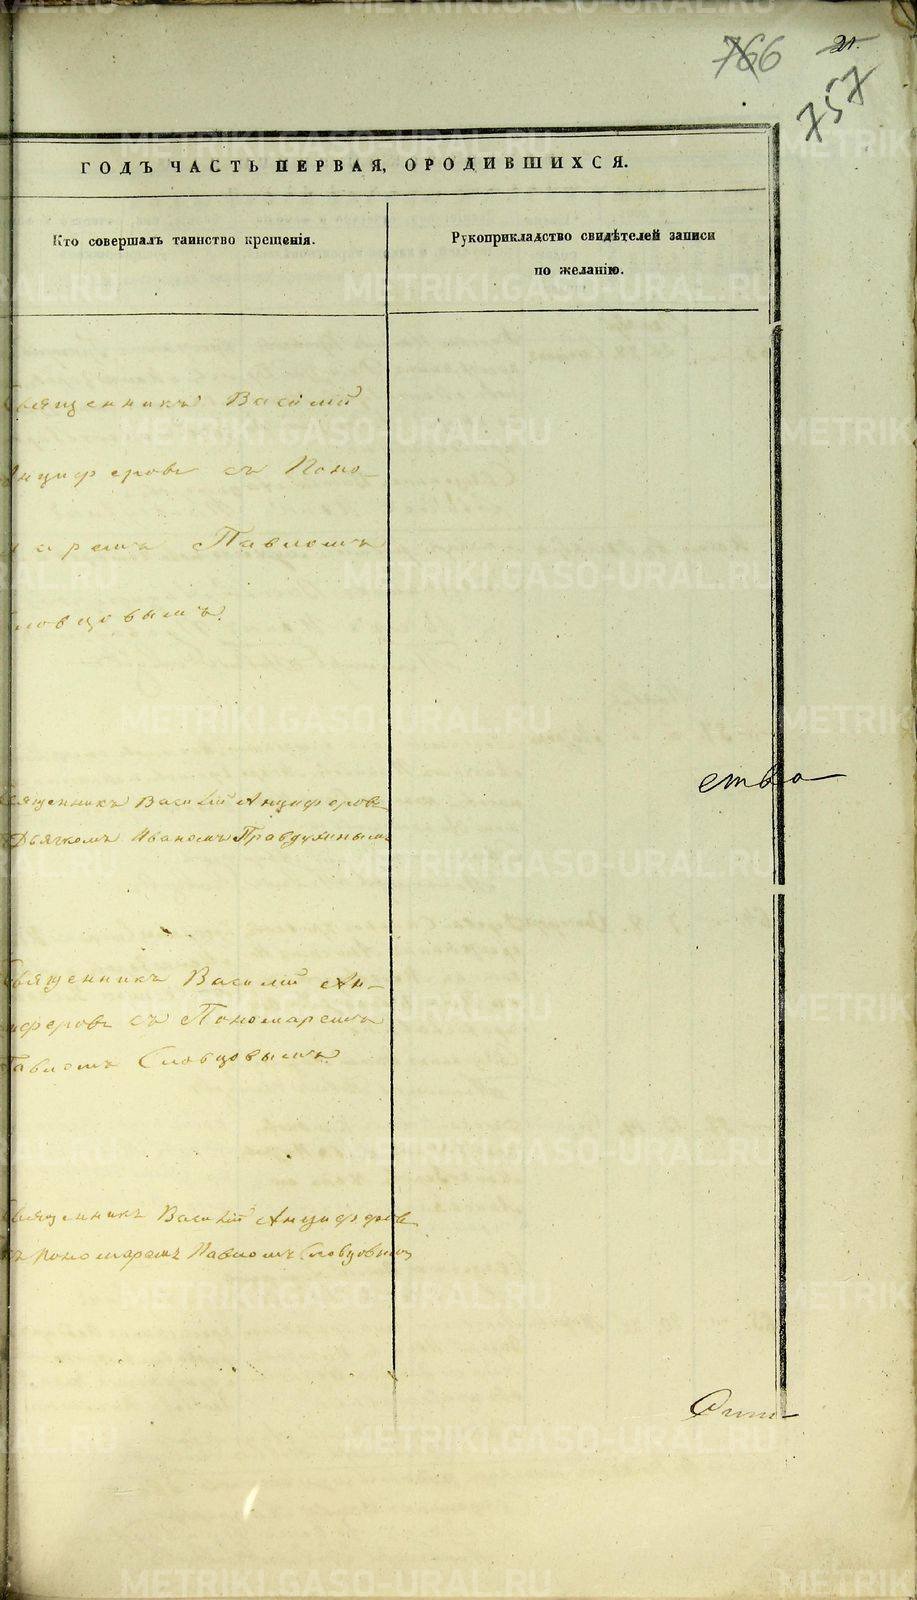 766 21.
757
ГОДЪ ЧАСТЬ ПЕРВАЯ, ОРОДИВШИХСЯ.
Кто совершалъ таинство крещенія.
Рукоприкладство свидѣтелей записи
по желанію.
Священникъ Василій
Анциферовъ съ Поно-
маремъ Павломъ
Словцовымъ.
Священникъ Василій Анциферовъ
Дьячкомъ Иваномъ Правдухинымъ
ства
Священникъ Василій Ан-
циферовъ съ Пономаремъ
Павломъ Словцовымъ
Священникъ Василій Анциферовъ
съ Пономаремъ Павломъ Словцовымъ
METRIKI.GASO-URAL.RU